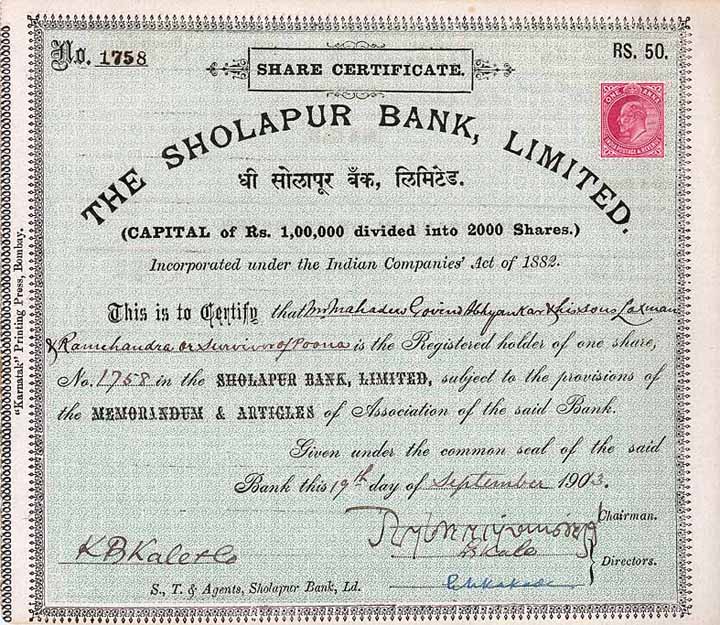 No. 1758
RS. 50.
SHARE CERTIFICATE.
ONE ANNA
INDIA POSTAGE & REVENUE
THE SHOLAPUR BANK, LIMITED.
धी सोलापूर बँक, लिमिटेड.
(CAPITAL of Rs. 1,00,000 divided into 2000 Shares.)
Incorporated under the Indian Companies' Act of 1882.
This is to Certify that Mr Mahadev Govind Abhyankar & his sons Laxman
& Ramchandra or survivor of Poona is the Registered holder of one share,
No. 1758 in the SHOLAPUR BANK, LIMITED, subject to the provisions of
the MEMORANDUM & ARTICLES of Association of the said Bank.
Given under the common seal of the said
Bank this 19th day of September 1903.
Chairman.
K B Kale & Co
Kale
Directors.
S., T. & Agents, Sholapur Bank, Ld.
"Karnatak" Printing Press, Bombay.